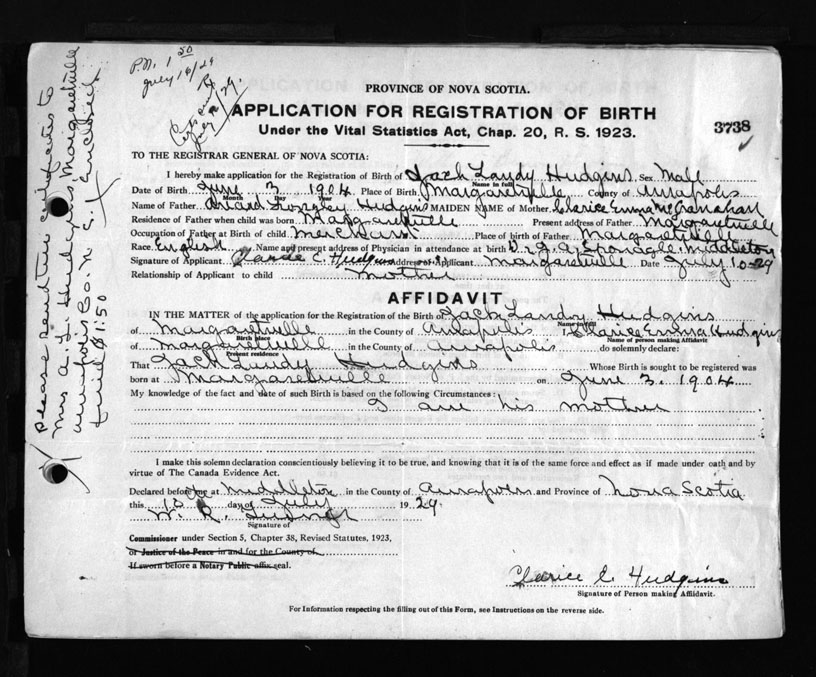 P.N. 1 50
July 10/29
PROVINCE OF NOVA SCOTIA.
APPLICATION FOR REGISTRATION OF BIRTH
Under the Vital Statistics Act, Chap. 20, R. S. 1923.
3738
TO THE REGISTRAR GENERAL OF NOVA SCOTIA:
I hereby make application for the Registration of Birth of Jack Landy Hudgins Sex Male
Name in full
Date of Birth June 3 1904 Place of Birth Margaretville County of Annapolis
Month Day Year
Name of Father Longley Hudgins MAIDEN NAME of Mother Clarice Emma
Residence of Father when child was born Margaretville Present address of Father Margaretville
Occupation of Father at Birth of child Merchant Place of birth of Father Margaretville
Race English Name and present address of Physician in attendance at birth Dr. Middleton
Signature of Applicant Clarice E. Hudgins Address of Applicant Margaretville Date July 10-29
Relationship of Applicant to child mother
AFFIDAVIT
IN THE MATTER of the application for the Registration of the Birth of Jack Landy Hudgins
Name in full
of Margaretville in the County of Annapolis I Clarice Emma Hudgins
Birth place
Name of person making Affidavit
of Margaretville in the County of Annapolis do solemnly declare:
Present residence
That Jack Landy Hudgins Whose Birth is sought to be registered was
born at Margaretville on June 3. 1904
My knowledge of the fact and date of such Birth is based on the following Circumstances:
I am his mother
I make this solemn declaration conscientiously believing it to be true, and knowing that it is of the same force and effect as if made under oath and by
virtue of The Canada Evidence Act.
Declared before me at Middleton in the County of Annapolis and Province of Nova Scotia
this 10 day of July 1929
W. R.
Signature of
Commissioner under Section 5, Chapter 38, Revised Statutes, 1923,
or Justice of the Peace in and for the County of
If sworn before a Notary Public affix seal.
Clarice E. Hudgins
Signature of Person making Affidavit.
For Information respecting the filling out of this Form, see Instructions on the reverse side.
Please send two certificates to
Mrs A. L. Hudgins, Margaretville
Annapolis Co. N. S. Enclosed
find $1.50